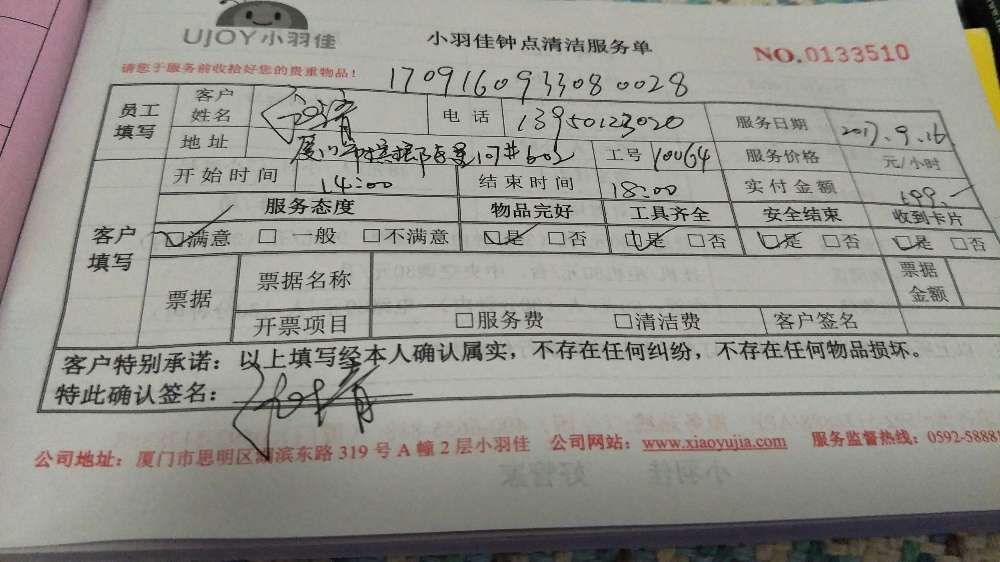 UJOY小羽佳
小羽佳钟点清洁服务单
NO.0133510
请您于服务前收拾好您的贵重物品！
1709160933080028
员工填写
客户姓名
电话 13950123020
服务日期 2017.9.16
地址 厦门市 602
工号 10064
服务价格 元/小时
开始时间 14:00
结束时间 18:00
实付金额
客户填写
服务态度 物品完好 工具齐全 安全结束 收到卡片
满意 一般 不满意 是 否 是 否 是 否 是 否
票据
票据名称
票据金额
开票项目 服务费 清洁费 客户签名
客户特别承诺：以上填写经本人确认属实，不存在任何纠纷，不存在任何物品损坏。
特此确认签名：
公司地址：厦门市思明区湖滨东路319号A幢2层小羽佳 公司网站：www.xiaoyujia.com 服务监督热线：0592-58881